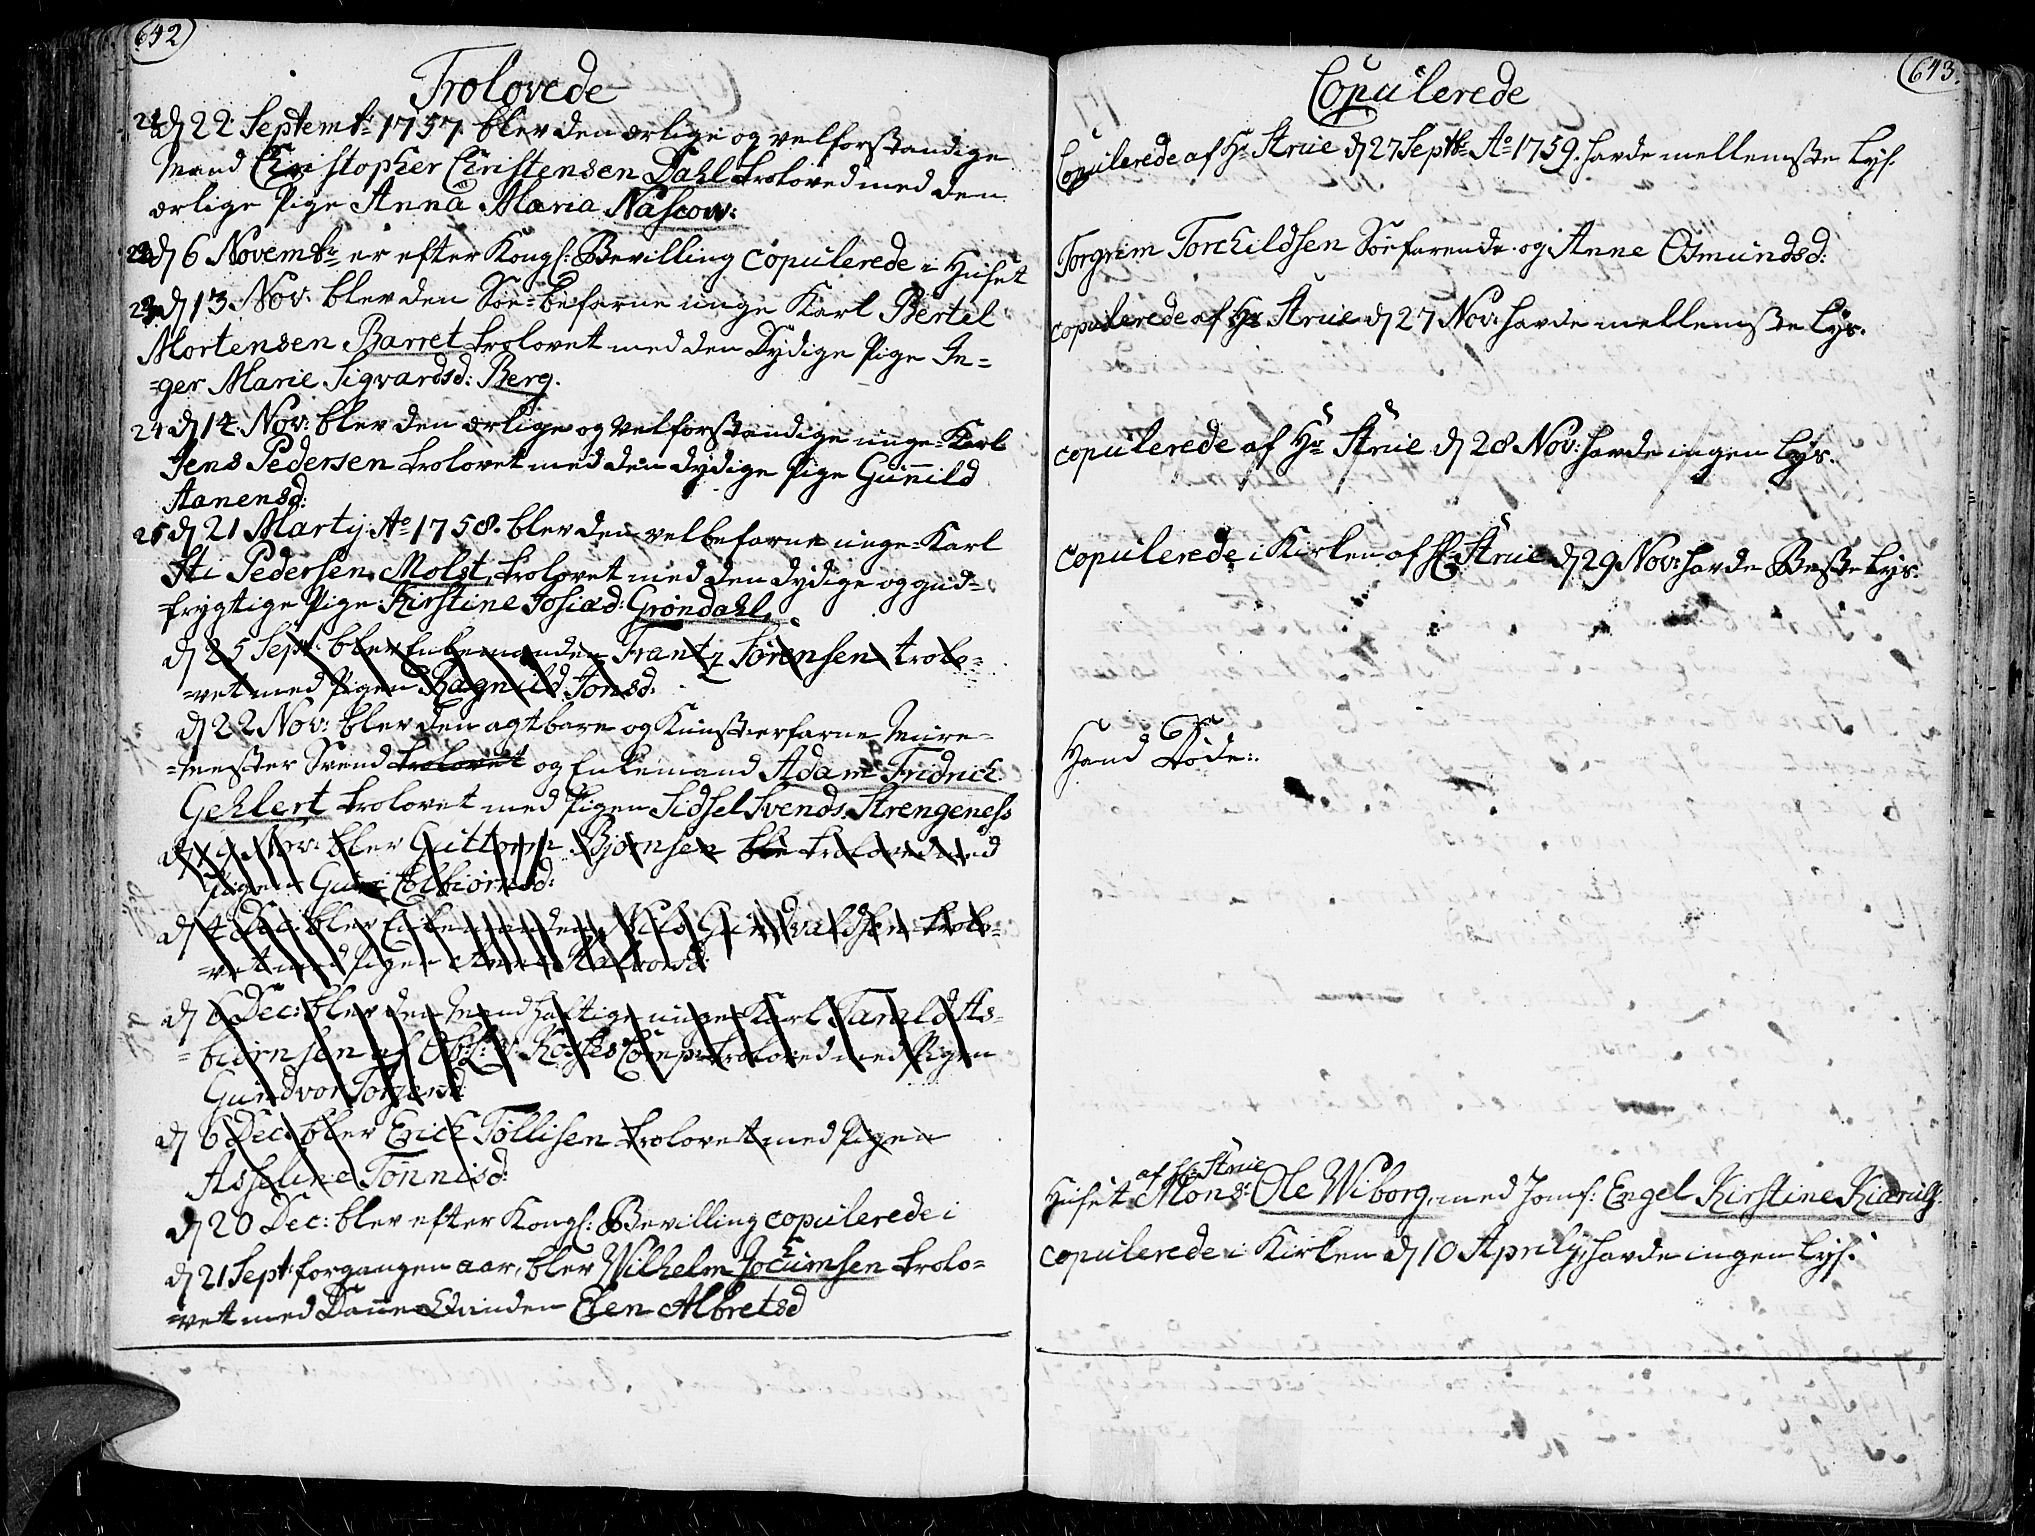 642
Trolovede
21 d 22 Septembr 1757 blev den ærlige og velforstandige
Mand Christopher Christensen Dahl troloved med den
ærlige Pige Anna Maria Nascow:
22 d 6 Novembr er efter Kongl: Bevilling copulerede i Huset
23 d 13 Nov: blev den Søe-befarne unge Karl Bertel
Mortensen Barret trolovet med den Dydige Pige In-
-ger Marie Sigvardsd: Berg.
24 d 14 Nov: blev den ærlige og velforstandige unge-Karl
Jens Pedersen trolovet med den dydige Pige Guñild
Aanensd:
25 d 21 Martij Ao 1758. blev den velbefarne unge-Karl
Sti Pedersen Molst, trolovet med den dydige og gud-
frygtige Pige Kirstine Josiæd: Grøndahl
d 25 Sept: blev Enkemanden Frantz Sørensen trolo-
-vet med Pigen Ragnild Jonsd:
d 22 Nov: blev den agtbare og Kunsterfarne Mure-
-Mester Svend trolovet og Enkemand Adam Fridrich
Gehlert trolovet med Pigen Sidsel Svends. Strengeness
d 29 Nov: blev Guttorm Bjørnsen ble troloved med
Pigen Guri Aslbiørnsd:
d 4 Dec: blev Enkemanden Nils Gundvaldsen trolo-
-vet med Pigen Anne Halvorsd:
d 6 Dec: blev den Mandhaftige unge Karl Tarald As-
-biørnsen af Ob:l: Kostes Comp: troloved med Pigen
Gundvor Torgersd:
d 6 Dec: blev Erich Tøllisen trolovet med Pigen
Asseline Tøñnisd:
d 20 Dec: blev efter Kongl: Bevilling copulerede i
d 21 Sept: forgangen aar, blev Wilhelm Jochumsen trolo-
-vet med Dañe-Qvinden Elen Albretsd
643
Copulerede
Copulerede af Hr Strue d 27 Septbr Ao 1759. havde mellemste Lys.
Torgrim Torchildsen Søefarende og Anne Osmundsd:
copulerede af Hr Strue d 27 Nov: havde mellemste Lys.
copulerede af Hr Strue d 28 Nov: havde ingen Lys.
copulerede i Kirken af Hr Strue d 29 Nov: havde Beste Lys:
Hand Døde:
af Hr: Strue
Huset Monsr: Ole Wiborg, med Jomf: Engel Kirstine Kiærulf.
copulerede i Kirken d 10 Aprilij, havde ingen Lys: